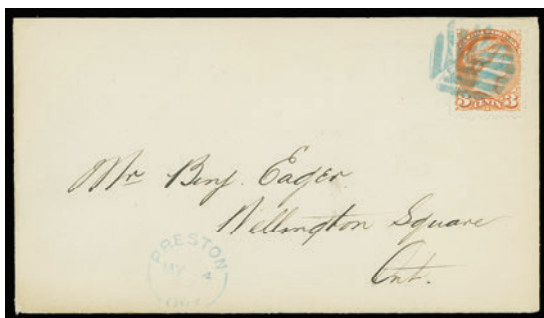 3 CENTS 3
Mr Benj. Eager.
Wellington Square
Ont.
PRESTON
4
ONT